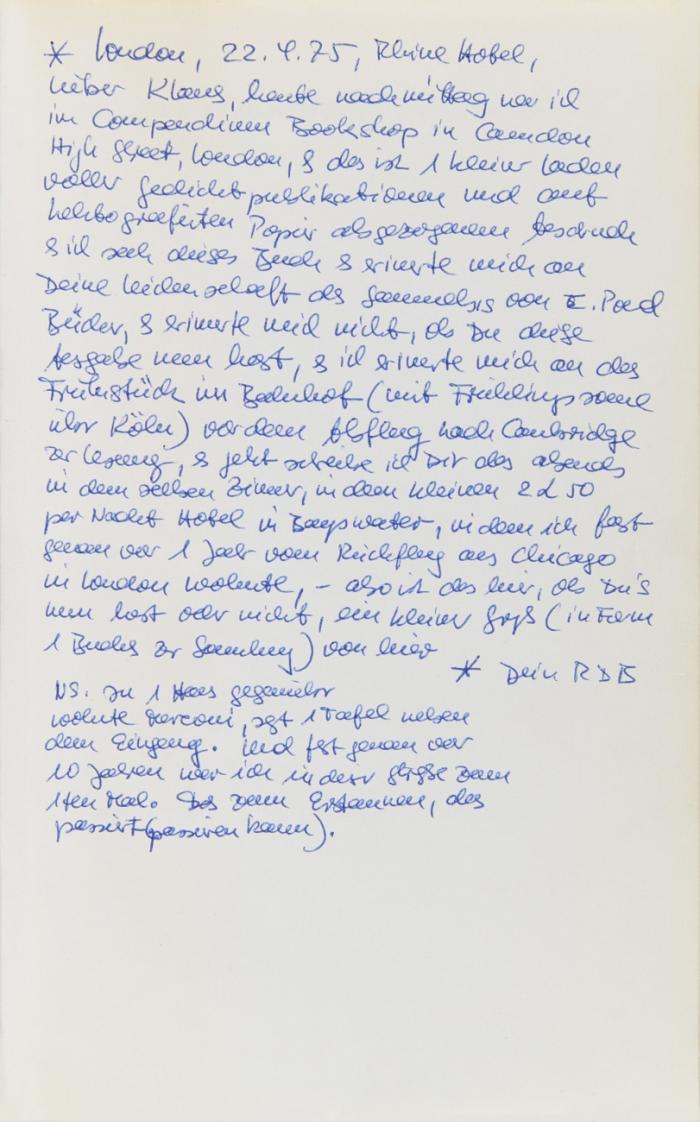 * London, 22.4.75, Rhine Hotel,
lieber Klaus, heute nachmittag war ich
im Compendium Bookshop in Camdon
High Street, London, & das ist 1 kleiner Laden
voller Gedichtpublikationen und auf
hektografierten Papier abgezogenem
& ich sah dieses Buch & erinerte mich an
Deine Leidenschaft des Sammelns von E. Pound
Bücher, & erinerte mich nicht, ob Du diese
Ausgabe nun hast, & ich erinerte mich an das
Frühstück im Bahnhof (mit Frühlingssonne
über Köln) vor dem Abflug nach Cambridge
zur Lesung, & jetzt schreibe ich Dir das abends
in dem selben Zimer, in dem kleinen 2 £ 50
per Nacht Hotel in Bayswater, in dem ich fast
genau vor 1 Jahr vom Rückflug aus Chicago
in London wohnte, – also ist das hier, ob Du's
nun hast oder nicht, ein kleiner Gruß (in Form
1 Buches zur Samlung) von hier
* Dein RDB
NS. in 1 Haus gegenüber
wohnte Marconi, sagt 1 Tafel neben
dem Eingang. Und fast genau vor
10 Jahren war ich in dieser Straße zum
1ten Mal. Das zum Erstaunen, das
passiert (passieren kann).